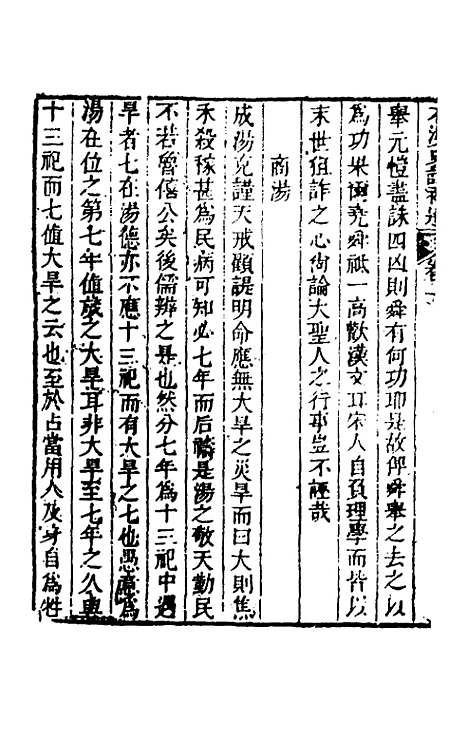 舉元愷盡誅四凶則舜有何功耶是故俾舜舉之去之以
為功果爾堯舜祇一高歡漢文耳宋人自負理學而皆以
末世狙詐之心尚論大聖人之行事豈不誣哉
商湯
成湯克謹天戒顧諟明命應無大旱之災旱而曰大則焦
禾殺稼甚為民病可知必七年而后禱是湯之敬天勤民
不若魯僖公矣後儒辨之是也然分七年為十三祀中遇
旱者七在湯德亦不應十三祀而有大旱之七也愚意為
湯在位之第七年值旅之大旱耳非大旱至七年之久與
十三祀而七值大旱之云也至於占當用人及身自為牲